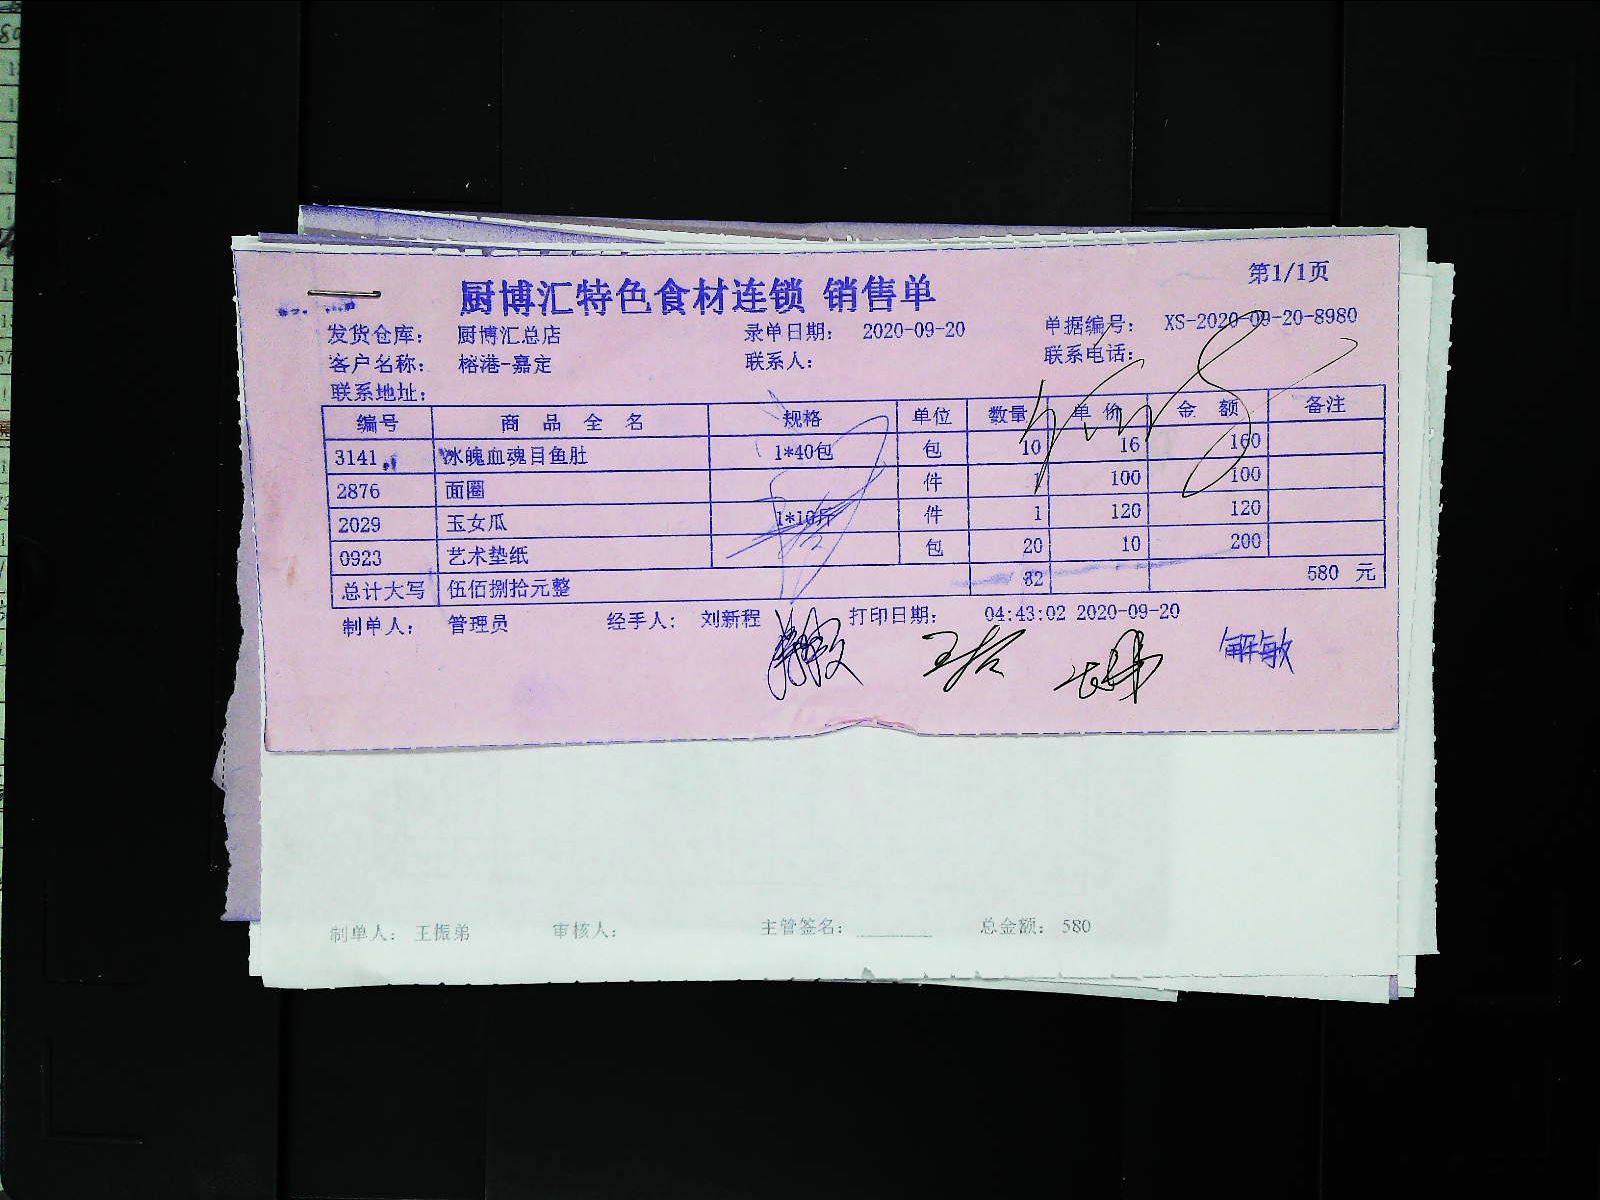 第1/1页
厨博汇特色食材连锁 销售单
发货仓库： 厨博汇总店 录单日期： 2020-09-20 单据编号： XS-2020-09-20-8980
客户名称： 榕港-嘉定 联系人： 联系电话：
联系地址：
编号 商品全名 规格 单位 数量 单价 金额 备注
3141 冰魄血魂目鱼肚 1*40包 包 10 16 160
2876 面圈 件 1 100 100
2029 玉女瓜 1*10斤 件 1 120 120
0923 艺术垫纸 包 20 10 200
总计大写 伍佰捌拾元整 32 580 元
制单人： 管理员 经手人： 刘新程 打印日期： 04:43:02 2020-09-20
解敏
制单人： 王振弟 审核人： 主管签名： 总金额： 580